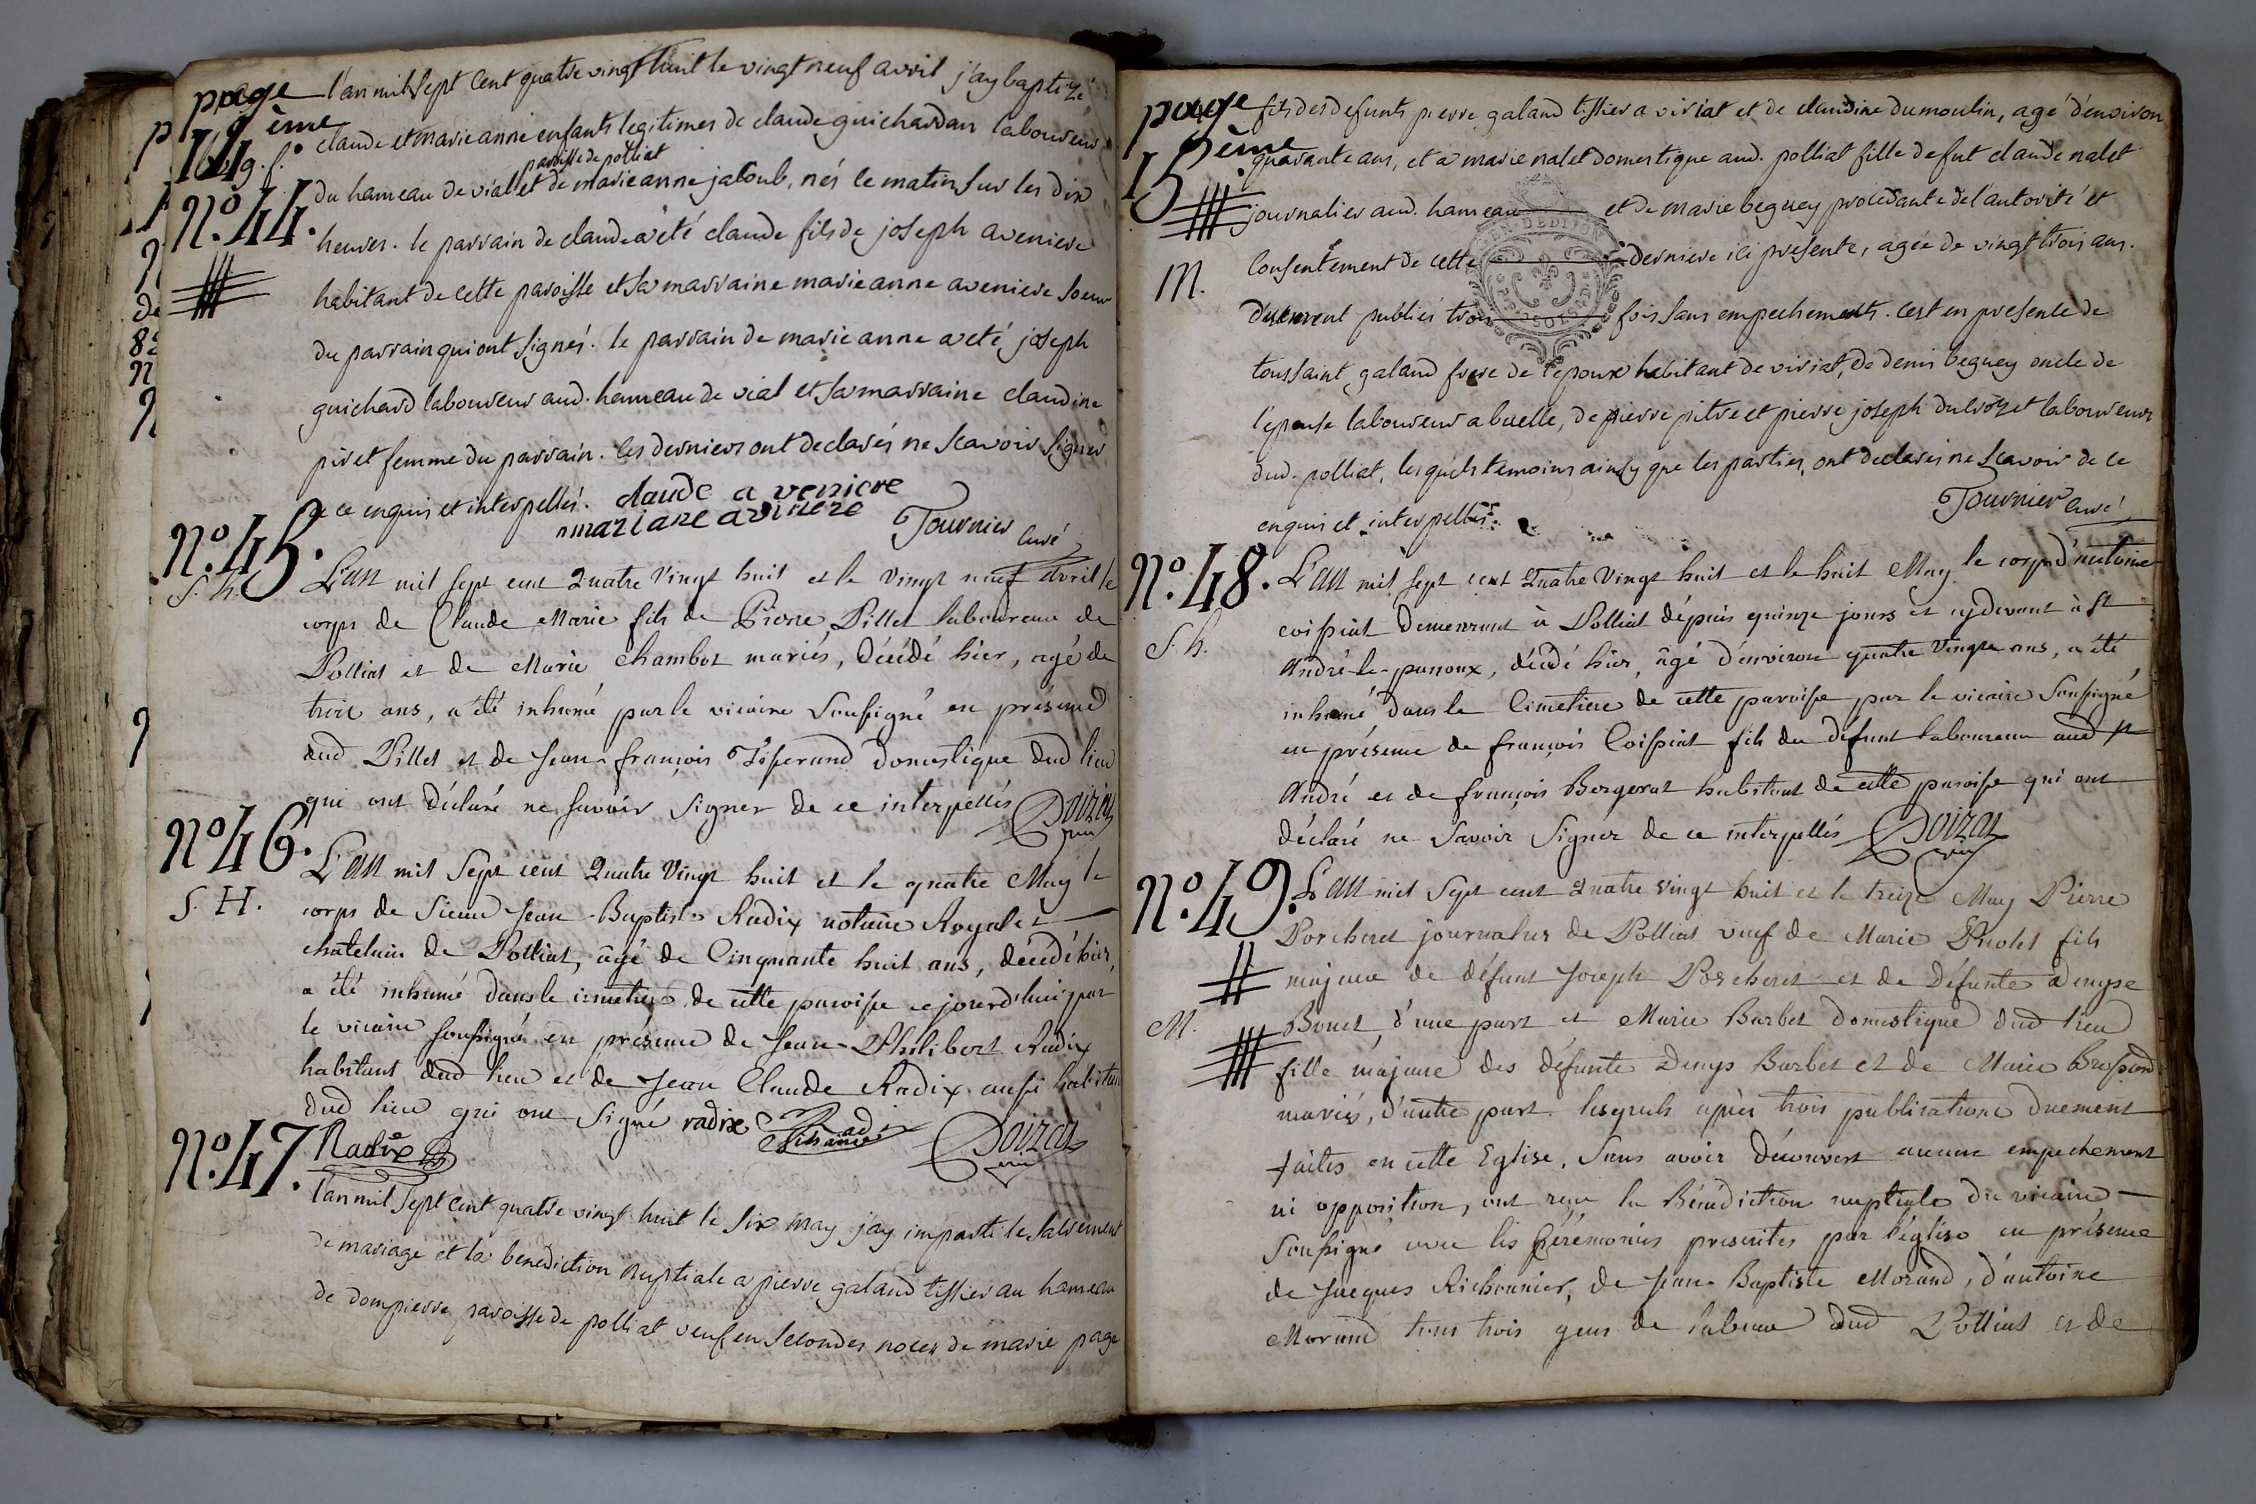 page 14ème
l'an mil sept cent quatre vingt huit le vingt neuf avril j'ay baptizé
claude et marie anne enfants legitimes de claude guichardan laboureur
g. f.
paroisse de polliat
du hameau de vial et de marie anne jacoub, nés le matin sur les dix
n° 44.
heures. le parrain de claude a été claude fils de joseph aveniere
habitant de cette paroisse et sa marraine marie anne aveniere soeur
du parrain qui ont signés. le parrain de marie anne a eté joseph
guichard laboureur aud. hameau de vial et sa marraine claudine
piret femme du parrain. les derniers ont declarés ne scavoir signer
de ce enquis et interpellés. claude a veniere
mariane avinere Tournier curé
n° 45.
S. h.
L'an mil sept cent Quatre Vingt huit et le vingt neuf Avril le
corps de Claude Marie fils de Pierre Pillet laboureur de
Polliat et de Marie Chambot mariés, décédé hier, agé de
trois ans, a été inhumé par le vicaire Soussigné en présence
dud Pillet et de Jean-françois Tiserand Domestique dud lieu
qui ont déclaré ne savoir signer de ce interpellés Doizat
vic
n° 46.
S. H.
L'an mil Sept cent Quatre Vingt huit et le quatre May le
corps de Sieur Jean-Baptiste Radix notaire Royal et
chatelain de Polliat, âgé de Cinquante huit ans, décédé hier,
a été inhumé dans le cimetiere de cette paroisse cejourd'hui par
le vicaire soussigné en présence de Jean-Philibert Radix
habitant dud lieu et de Jean Claude Radix aussi habitant
dud lieu qui ont Signé radix Radix
Doizat
vic
n° 47.
Radix
l'an mil sept cent quatre vingt huit le six may j'ay imparti le sacrement
de mariage et la benediction nuptiale a pierre galand tissier au hameau
de dompierre paroisse de polliat veuf en secondes noces de marie page
page 15ème
fils des defunts pierre galand tissier a viriat et de claudine dumoulin, agé d'environ
quarante ans, et a marie nalet domestique aud. polliat fille de fut claude nalet
journalier aud. hameau et de marie beguey procedante de l'autorité et
M.
consentement de cette derniere ici presente, agée de vingt trois ans.
duement publiés trois fois sans empechements. c'est en presence de
toussaint galand frere de l'epoux habitant de viriat, de denis beguey oncle de
l'epouse laboureur a buelle, de pierre pitre et pierre joseph ducrozet laboureurs
dud. polliat, lesquels temoins ainsy que les parties, ont declarés ne scavoir de ce
enquis et interpellés. Tournier curé
n° 48.
S. h.
L'an mil sept cent Quatre Vingt huit et le huit May le corps d'antoine
coissiat demeurant à Polliat dépuis quinze jours et cydevant à St
André-le-panoux, décédé hier, âgé d'environ quatre Vingt ans, a été
inhumé dans le Cimetiere de cette paroisse par le vicaire Soussigné
en présence de françois Coissiat fils du défunt laboureur aud St
André et de françois Bergerat habitant de cette paroisse qui ont
déclaré ne Savoir Signer de ce interpellés Doizat
vic
n° 49.
L'an mil Sept cent quatre vingt huit et le treize May Pierre
Porcheret journalier de Polliat veuf de Marie Puolet fils
majeur de défunt Joseph Porcheret et de Défunte Denyse
M.
Bouet d'une part et Marie Barbet domestique dud lieu
fille majeure des défunts Denys Barbet et de Marie Brossard
mariés, d'autre part. lesquels après trois publications duement
faites en cette Eglise, Sans avoir découvert aucun empechement
ni opposition, ont reçu la Bénédiction nuptiale du vicaire
Soussigné avec les Cérémonies prescrites par l'église en présence
de Jacques Richonnier, de Jean Baptiste Morand, d'antoine
Morand tous trois gens de labeur dud Polliat et de